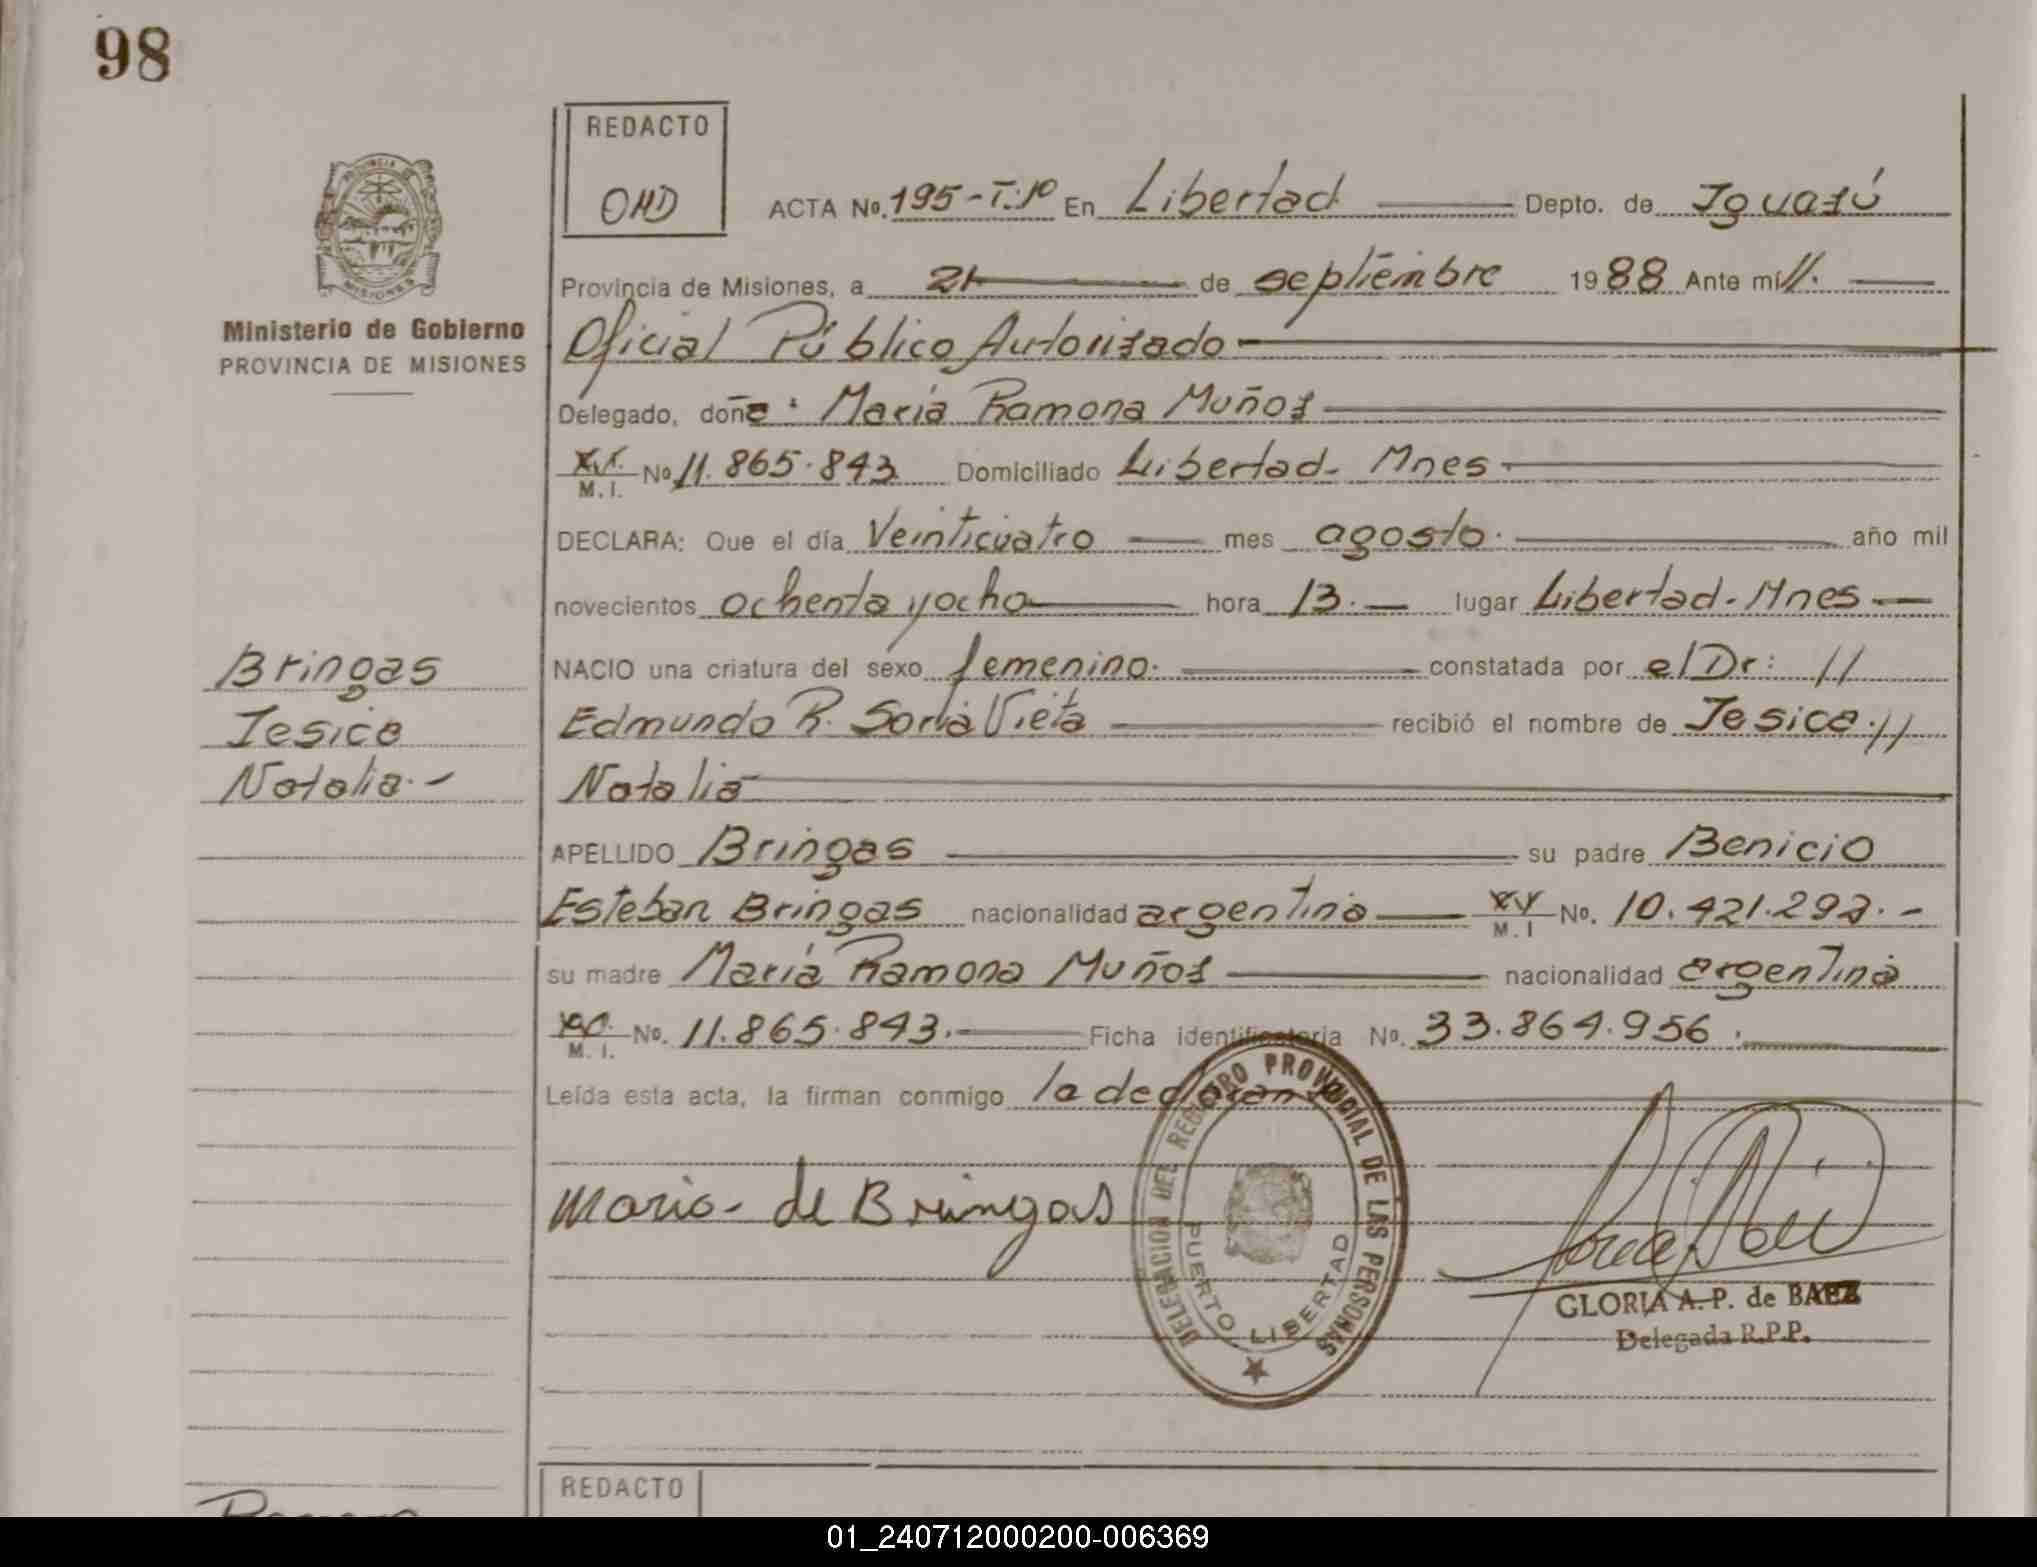 98
REDACTO
OHD
ACTA No. 195-T:1º En Libertad Depto. de Iguazú
Provincia de Misiones, a 21 de septiembre 1988 Ante mí //.
Ministerio de Gobierno
PROVINCIA DE MISIONES
Oficial Público Autorizado -
Delegado, doña: María Ramona Muñoz
M.I. No 11.865.843 Domiciliado Libertad- Mnes-
DECLARA: Que el día Veinticuatro mes agosto. año mil
novecientos ochenta y ocho hora 13. lugar Libertad-Mnes-
NACIO una criatura del sexo femenino. constatada por el Dr: //
Edmundo R. Soria Vieta recibió el nombre de Jesica.//
Natalia
Bringas
Jesica
Natalia.-
APELLIDO Bringas su padre Benicio
Esteban Bringas nacionalidad argentina M.I No. 10.421.292.-
su madre María Ramona Muñoz nacionalidad argentina
M.I. No. 11.865.843. Ficha identificatoria No. 33.864.956.
Leída esta acta, la firman conmigo la
Maria- de Bringas
DELEGACION DEL REGISTRO PROVINCIAL DE LAS PERSONAS
PUERTO LIBERTAD
GLORIA A. P. de BAEZ
Delegada R.P.P.
REDACTO
01_240712000200-006369